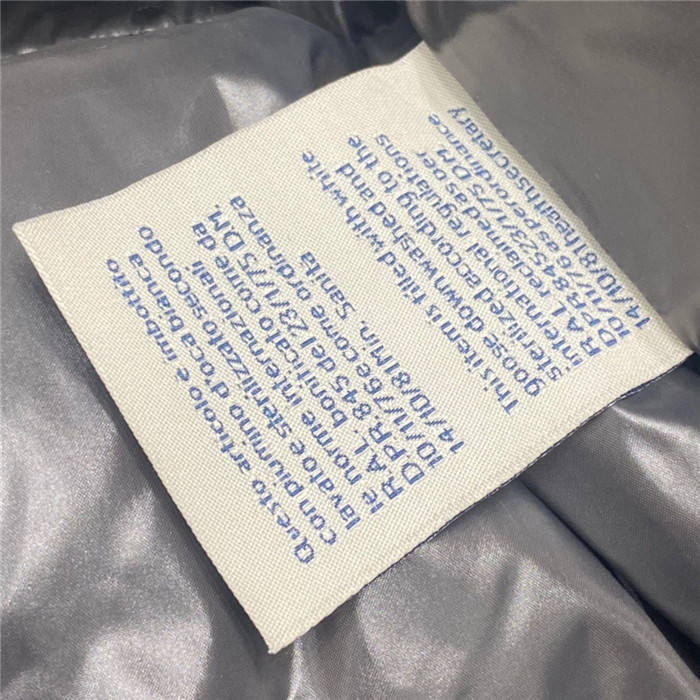 Questo articolo e imbottito
con piumino d'oca bianca
lavato e sterilizzato secondo
le norme internazionali
R.A.L: bonificato come da
D.PR.845 del 23/1/75 DM.
10/11/76 e come ordinanza
14/10/81 Min. Sanita
This item is filled with white
goose down washed and
sternlized according to the
international regulations
R.A.L reclamed as per
D.PR 845 23/1/75 D.M.
10/11/76 as per ordinance
14/10/81 healinsecretary